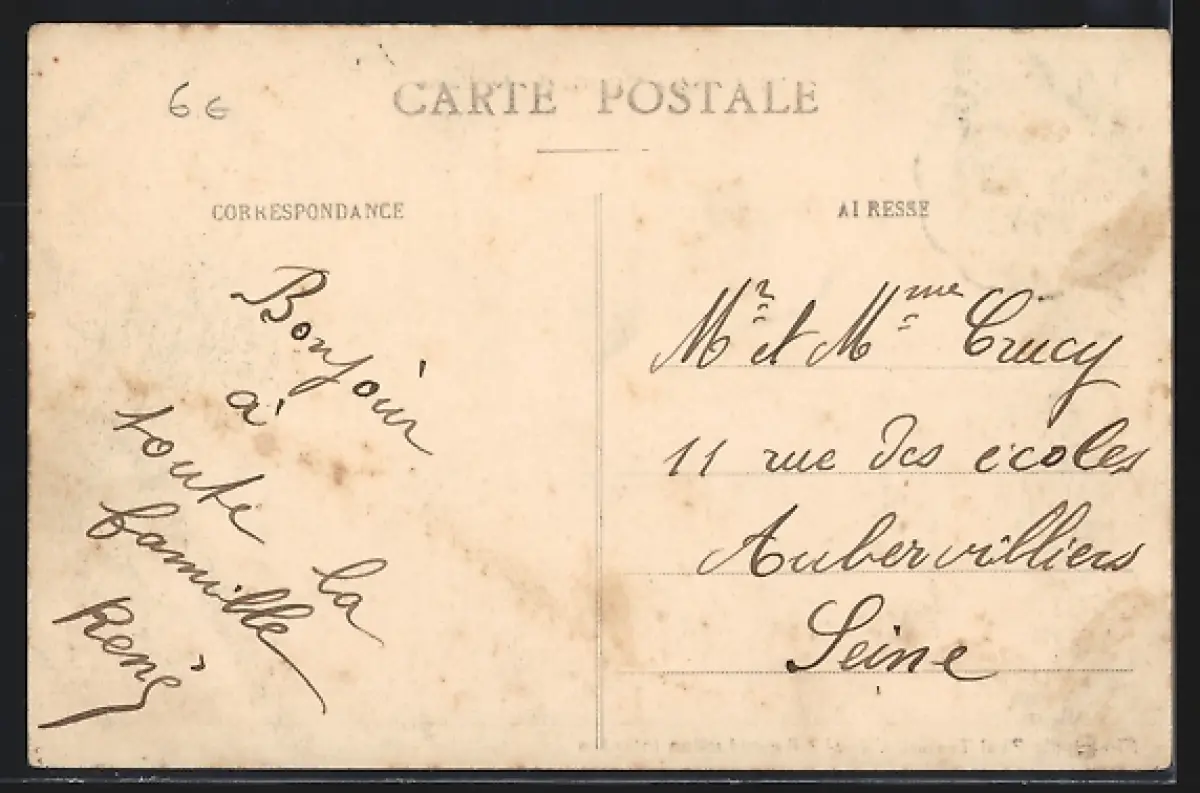 6€
CARTE POSTALE
CORRESPONDANCE
Bonjour
à
toute la
famille
René
AIRESSE
Mr et Mme Crucy
11 rue des écoles
Aubervilliers
Seine